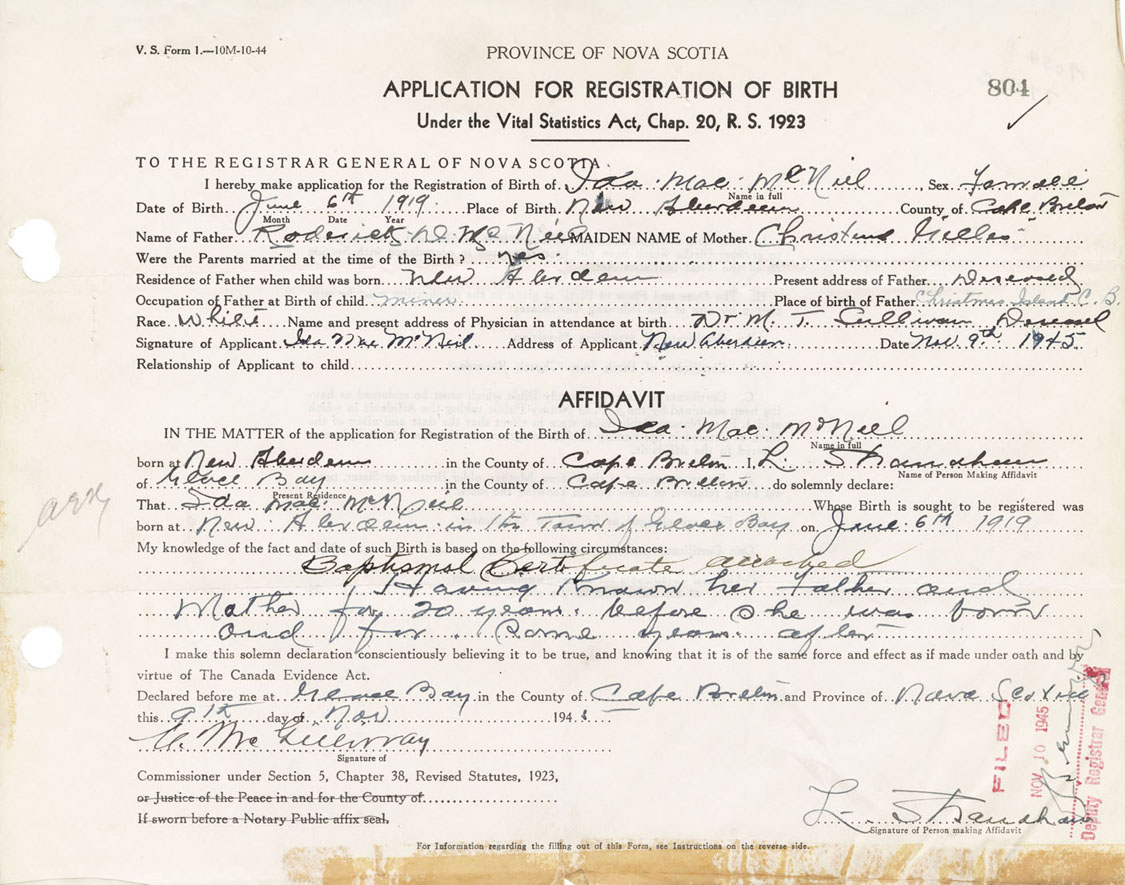 V. S. Form 1.—10M-10-44
PROVINCE OF NOVA SCOTIA
APPLICATION FOR REGISTRATION OF BIRTH
804
Under the Vital Statistics Act, Chap. 20, R. S. 1923
TO THE REGISTRAR GENERAL OF NOVA SCOTIA
I hereby make application for the Registration of Birth of Ida Mae McNeil, Sex
Name in full
Date of Birth June 6th 1919 Place of Birth New Aberdeen County of Cape Breton
Month Date Year
Name of Father Roderick D. McNeil MAIDEN NAME of Mother Christena Gillis
Were the Parents married at the time of the Birth? yes
Residence of Father when child was born New Aberdeen Present address of Father Deseased
Occupation of Father at Birth of child miner Place of birth of Father Christmas Island C. B.
Race White Name and present address of Physician in attendance at birth Dr M. T. Sullivan
Signature of Applicant Ida Mae McNeil Address of Applicant New Aberdeen Date Nov. 9th 1945
Relationship of Applicant to child
AFFIDAVIT
IN THE MATTER of the application for Registration of the Birth of Ida Mae McNeil
Name in full
born at New Aberdeen in the County of Cape Breton I, L. Stranahan
Name of Person Making Affidavit
of Glace Bay in the County of Cape Breton do solemnly declare:
Present Residence
That Ida Mae McNeil Whose Birth is sought to be registered was
born at New Aberdeen in the Town of Glace Bay on June 6th 1919
My knowledge of the fact and date of such Birth is based on the following circumstances:
Baptismal Certificate attached
Having Known her Father and
Mother for 20 years before she was born
and for some years after
I make this solemn declaration conscientiously believing it to be true, and knowing that it is of the same force and effect as if made under oath and by
virtue of The Canada Evidence Act.
Declared before me at Glace Bay in the County of Cape Breton and Province of Nova Scotia
this 9th day of Nov 1945
McGillivray
Signature of
Commissioner under Section 5, Chapter 38, Revised Statutes, 1923,
or Justice of the Peace in and for the County of
If sworn before a Notary Public affix seal,
L. Stranahan
Signature of Person making Affidavit
For Information regarding the filling out of this Form, see Instructions on the reverse side.
FILED
NOV 10 1945
Deputy Registrar General